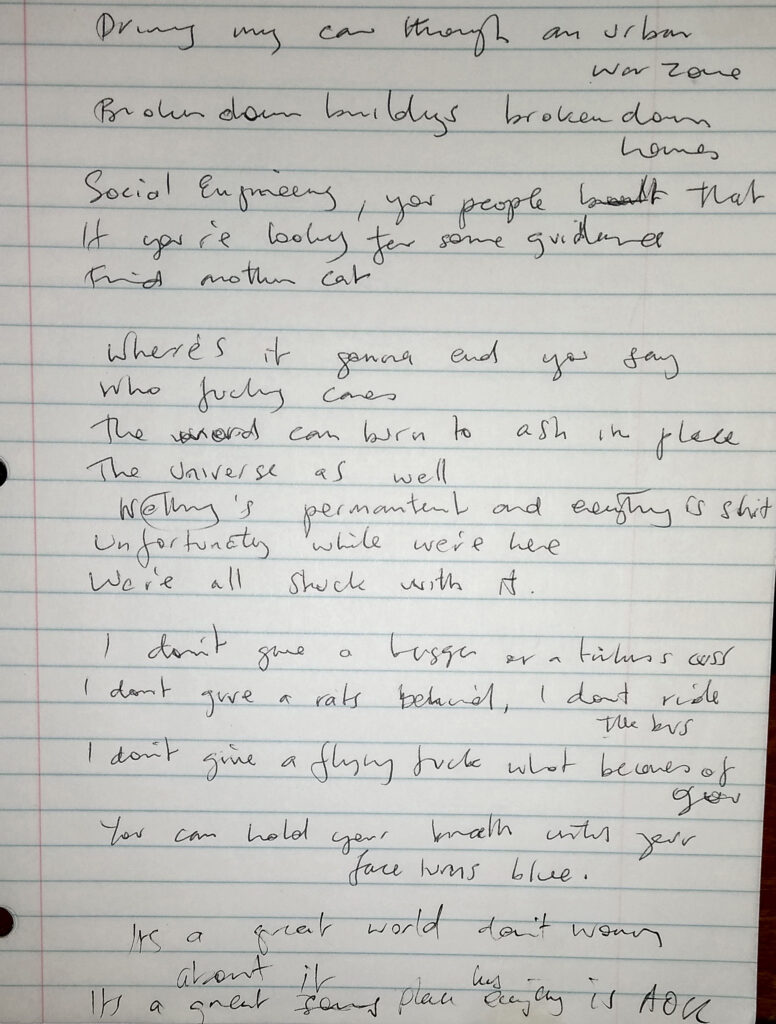 Driving my car through an urban
war zone
Broken down buildings broken down
homes
Social Engineering, you people built that
If you're looking for some guidance
Find another cat
Where's it gonna end you say
Who fucking cares
The world can burn to ash in place
The Universe as well
Nothing's permantent and everything is shit
Unfortunately while we're here
We're all stuck with it.
I don't give a bugger or a tinkers cuss
I don't give a rats behind, I dont ride
the bus
I don't give a flying fuck what becomes of
you
You can hold your breath until your
face turns blue.
Its a great world don't worry
about it
Its a great place everything is AOK